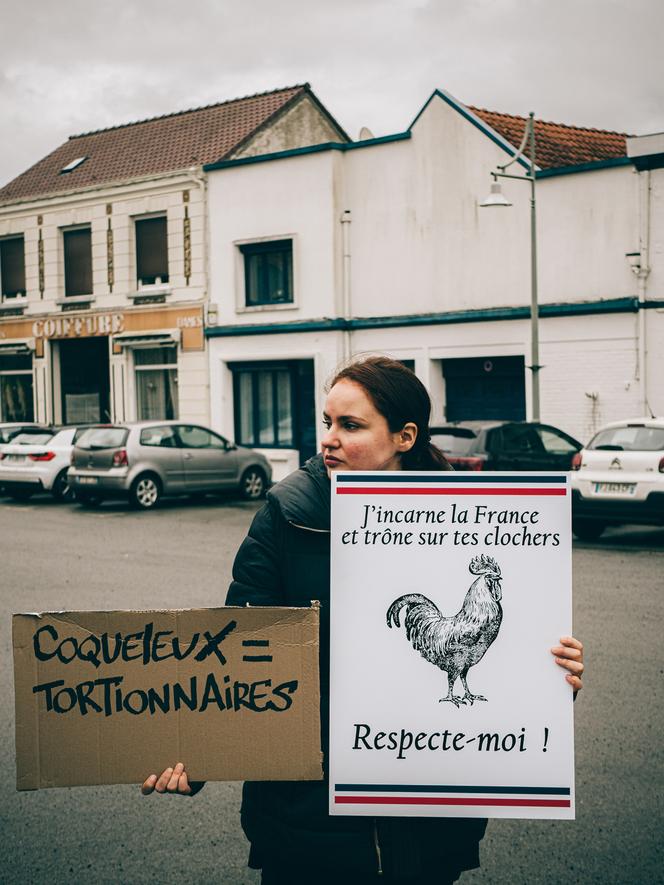 COIFFURE
DAMES
J'incarne la France
et trône sur tes clochers
Respecte-moi !
COQUELEUX =
TORTIONNAIRES